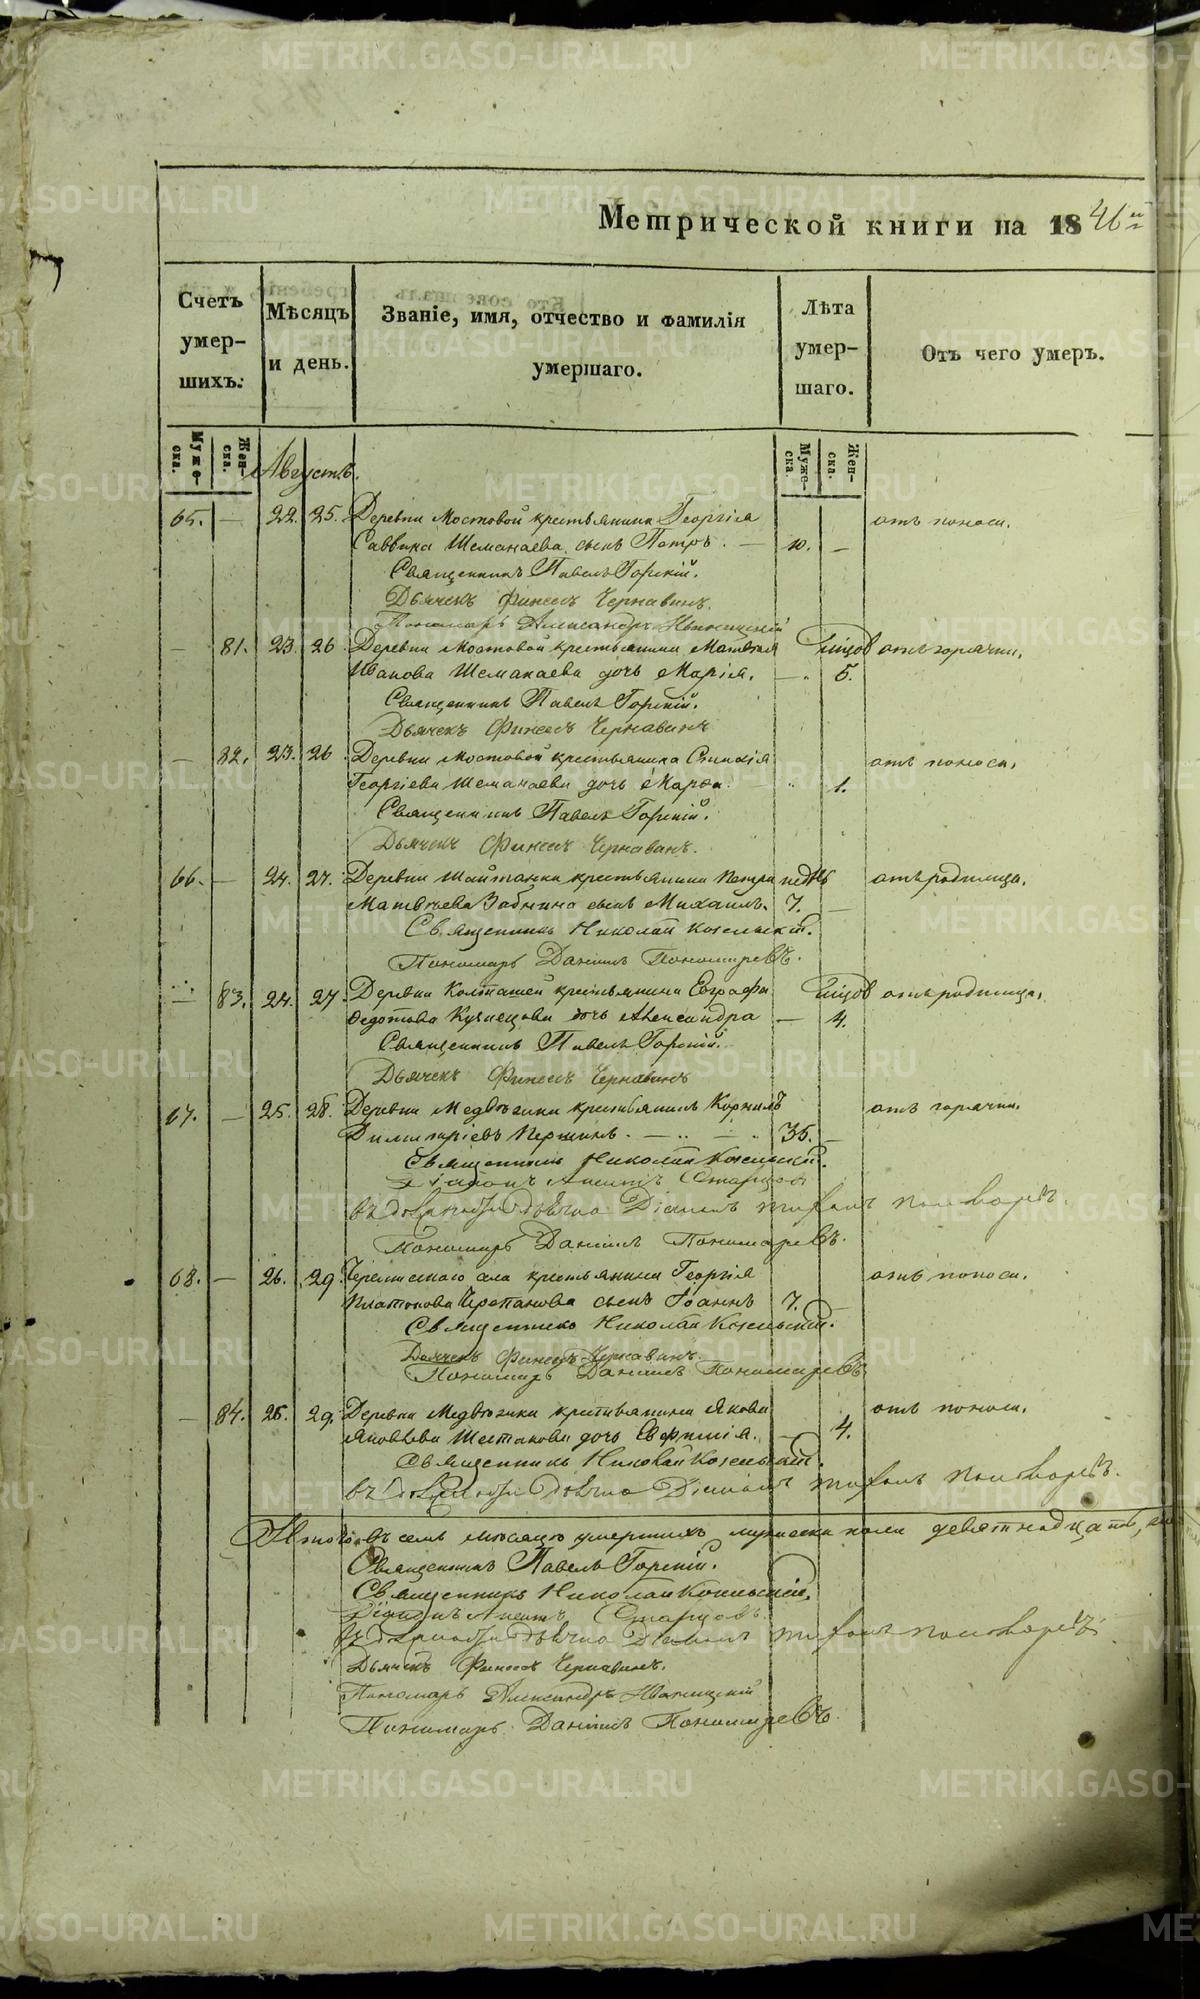 Метрической книги на 1846й
Счетъ умер- шихъ.
Мѣсяцъ и день.
Званіе, имя, отчество и фамилія умершаго.
Лѣта умер- шаго.
Отъ чего умеръ.
Муже- ска.
Жен- ска.
Августъ.
Муже- ска.
Жен- ска.
65. — 22. 25. Деревни Мостовой крестьянина Георгія отъ поноса.
Саввина Шеманаева сынъ Петръ. — —
Священникъ Павелъ Горскій.
Дьячекъ Финеесъ Чернавинъ.
Пономарь Александръ
— 81. 23. 26. Деревни Мостовой крестьянина Матвея отъ горячки.
Иванова Шеманаева дочь Марія. — 5.
Священникъ Павелъ Горскій.
Дьячекъ Финеесъ Чернавинъ
— 82. 23. 26. Деревни Мостовой крестьянина отъ поноса.
Георгіева Шеманаева дочь Марфа. 1.
Священникъ Павелъ Горскій.
Дьячекъ Финеесъ Чернавинъ.
66. — 24. 27. Деревни Шайтанки крестьянина Петра недѣль отъ родимца.
Матвѣева Забнина сынъ Михаилъ. 7. —
Священникъ Николай
Пономарь Даніилъ Пономаревъ.
— 83. 24. 27. Деревни Колташей крестьянина Евграфа отъ родимца.
Федотова Кузнецова дочь Александра — 4.
Священникъ Павелъ Горскій.
Дьячекъ Финеесъ Чернавинъ
67. — 25. 28. Деревни Медвѣгина крестьянинъ Корнилъ отъ горячки.
Димитріевъ Першинъ. — 35. —
Священникъ Николай
Діаконъ Старцовъ
Пономарь Даніилъ Пономаревъ.
68. — 26. 29. Черемисскаго села крестьянина Георгія отъ поноса.
Платонова Черепанова сынъ Іоаннъ 7. —
Священникъ Николай
Дьячекъ Финеесъ Чернавинъ.
Пономарь Даніилъ Пономаревъ
— 84. 26. 29. Деревни крестьянина Якова отъ поноса.
Яковлева Шестакова дочь Евфимія. — 4.
Священникъ Николай
Итого въ семъ мѣсяцѣ умершихъ мужеска пола девятнадцать,
Священникъ Павелъ Горскій.
Священникъ Николай
Діаконъ Старцовъ
Дьячекъ Финеесъ Чернавинъ.
Пономарь Александръ
Пономарь Даніилъ Пономаревъ.
METRIKI.GASO-URAL.RU